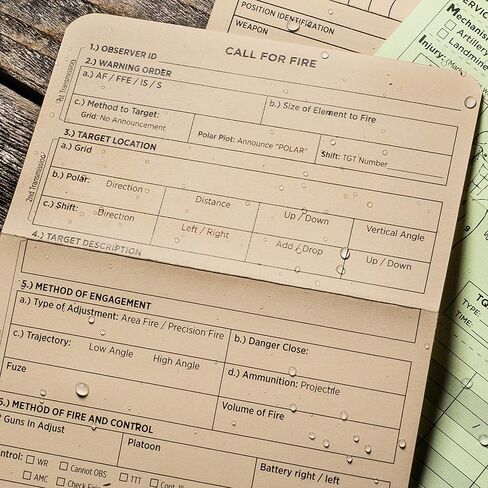 POSITION IDENTIFICATION
WEAPON
CALL FOR FIRE
1.) OBSERVER ID
2.) WARNING ORDER
a.) AF / FFE / IS / S
b.) Size of Element to Fire
c.) Method to Target:
Grid: No Announcement
Polar Plot: Announce "POLAR"
Shift: TGT Number
1st Transmission
3.) TARGET LOCATION
a.) Grid
b.) Polar:
Direction
Distance
Up / Down
Vertical Angle
c.) Shift:
Direction
Left / Right
Add / Drop
Up / Down
2nd Transmission
4.) TARGET DESCRIPTION
5.) METHOD OF ENGAGEMENT
a.) Type of Adjustment: Area Fire / Precision Fire
b.) Danger Close:
c.) Trajectory:
Low Angle
High Angle
d.) Ammunition: Projectile
Fuze
Volume of Fire
6.) METHOD OF FIRE AND CONTROL
Guns In Adjust
Platoon
Battery right / left
WR
Cannot OBS
TTT
AMC
Check
Mechanis
Artillery
Landmine
Injury:
TQ
TYPE:
TIME: